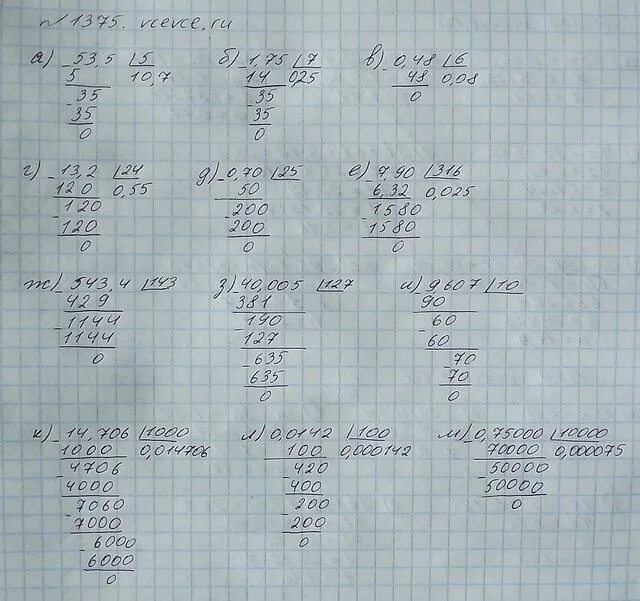 № 1375. vcevce.ru
а) -53,5 |5 б) -1,75 |7 в) -0,48 |6
5 10,7 14 0,25 48 0,08
-35 -35 0
35 35
0 0
г) -13,2 |24 д) -0,70 |25 е) -7,90 |316
120 0,55 50 6,32 0,025
-120 -200 -1580
120 200 1580
0 0 0
ж) -543,4 |143 з) -40,005 |127 и) -9607 |10
429 381 90
-1144 -190 -60
1144 127 60
0 -635 -70
635 70
0 0
к) -14,706 |1000 л) -0,0142 |100 м) -0,75000 |10000
1000 0,014706 100 0,000142 70000 0,000075
-4706 -420 -50000
4000 400 50000
-7060 -200 0
7000 200
-6000 0
6000
0